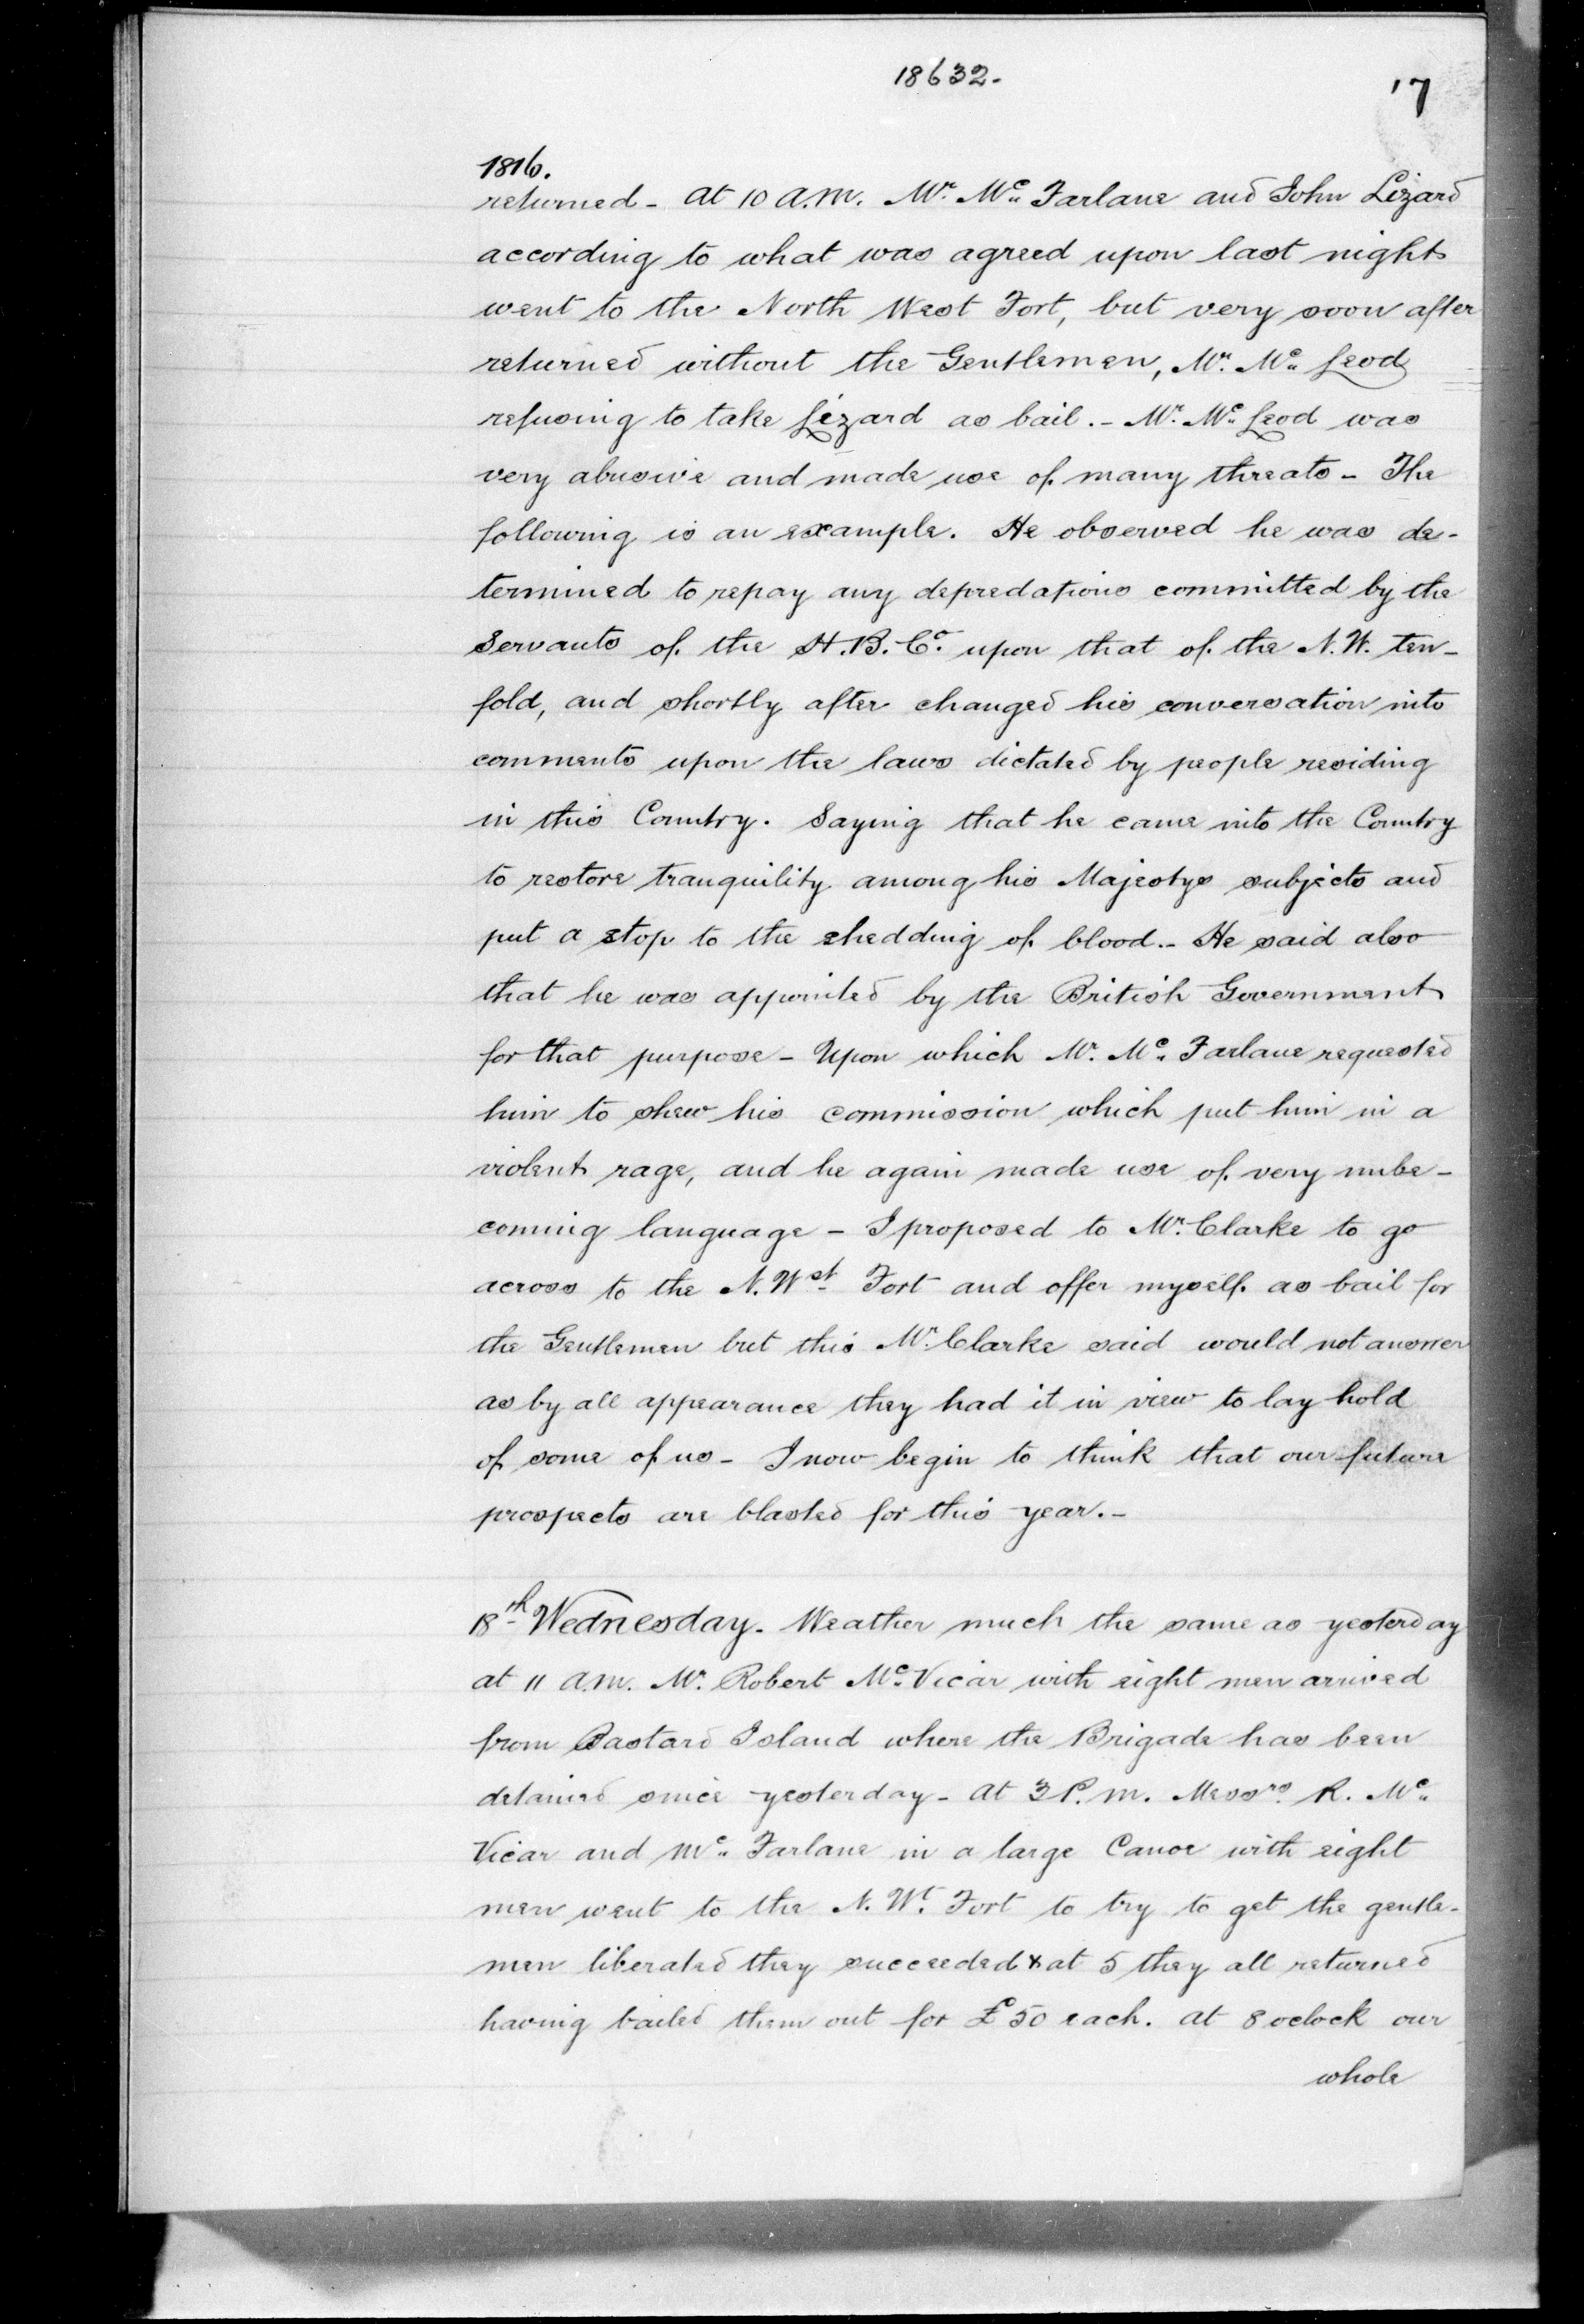 18632.
17
1816.
returned - At 10 A.M. Mr. Mc. Farlane and John Lizard
according to what was agreed upon last night
went to the North West Fort, but very soon after
returned without the Gentlemen, Mr. Mc. Leod
refusing to take Lizard as bail. - Mr. Mc. Leod was
very abusive and made use of many threats - The
following is an example. He observed he was de-
termined to repay any depredations committed by the
Servants of the H.B. Co. upon that of the N.W. ten-
fold, and shortly after changed his conversation into
comments upon the laws dictated by people residing
in this Country. Saying that he came into the Country
to restore tranquility among his Majestys subjects and
put a stop to the shedding of blood. - He said also
that he was appointed by the British Government
for that purpose - Upon which Mr. Mc. Farlane requested
him to shew his commission which put him in a
violent rage, and he again made use of very unbe-
coming language - I proposed to Mr. Clarke to go
across to the N. Wst. Fort and offer myself as bail for
the Gentlemen but this Mr. Clarke said would not answer
as by all appearance they had it in view to lay hold
of some of us - I now begin to think that our future
prospects are blasted for this year. -
18th Wednesday. Weather much the same as yesterday
at 11 A.M. Mr. Robert Mc. Vicar with eight men arrived
from Bastard Island where the Brigade has been
detained since yesterday - At 3 P.M. Messrs. R. Mc.
Vicar and Mc. Farlane in a large Canoe with eight
men went to the N. Wt. Fort to try to get the gentle-
men liberated they succeeded & at 5 they all returned
having bailed them out for £50 each. At 8 oclock our
whole